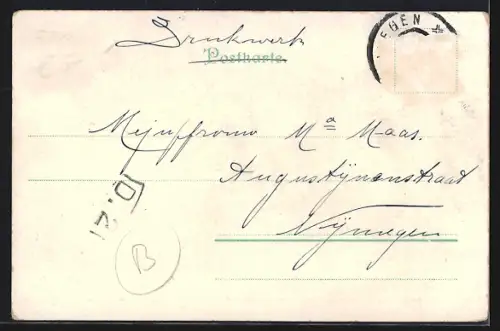 Drukwerk
Postkarte.
EGEN
Mejuffrouw Ma Maas.
Augustijnenstraat
Nijmegen
D.21
B